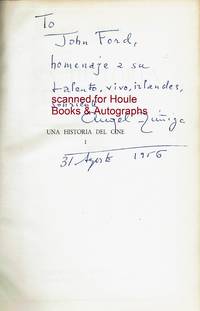 To
John Ford,
homenaje a su
talento, vivo, irlandes,
scanned for Houle
Books & Autographs
Angel Zúñiga
UNA HISTORIA DEL CINE
I
31 Agosto 1956